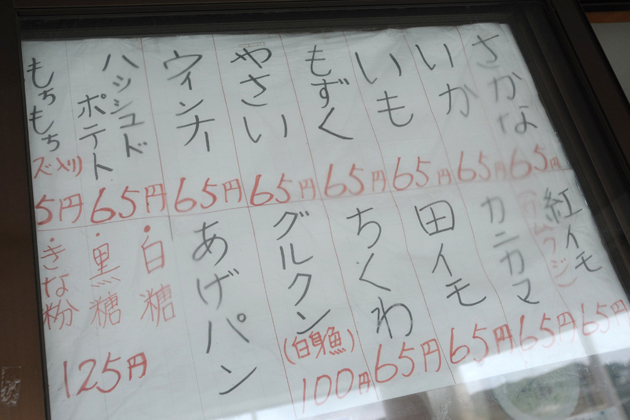 さかな
65円
いか
65円
いも
65円
もずく
65円
やさい
65円
ウィンナー
65円
ハッシュド
ポテト
65円
もちもち
ズ入り
5円
紅イモ
65円
カニカマ
65円
田イモ
65円
ちくわ
65円
グルクン
(白身魚)
100円
あげパン
・白糖
・黒糖
・きな粉
125円